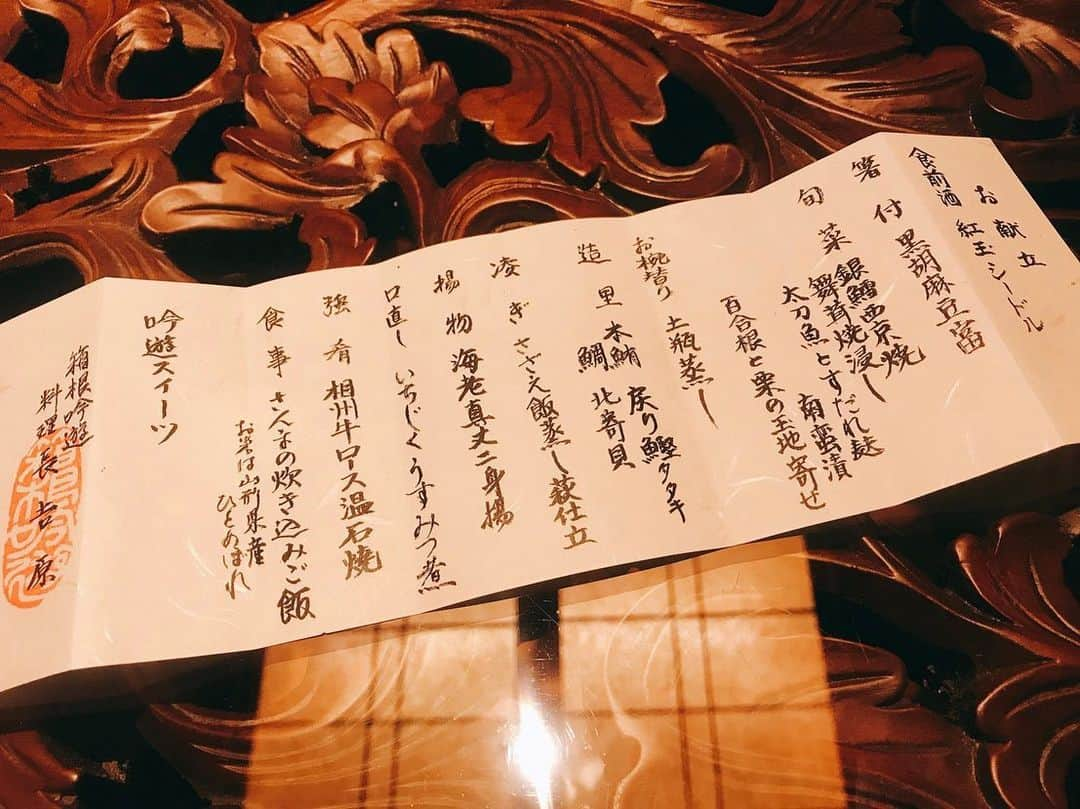 お献立
食前酒 紅玉シードル
箸付 黒胡麻豆富
旬菜 銀鱈西京焼
舞茸焼浸し
太刀魚とすだれ麩 南蛮漬
百合根と栗の玉地寄せ
お椀替り 土瓶蒸し
造里 本鮪 戻り鰹タタキ
鯛 北寄貝
凌ぎ さざえ飯蒸し萩仕立
揚物 海老真丈二身揚
口直し いちじくうすみつ煮
強肴 相州牛ロース温石焼
食事 さんまの炊き込みご飯
お米は山形県産
ひとめぼれ
吟遊スイーツ
箱根吟遊
料理長 吉原